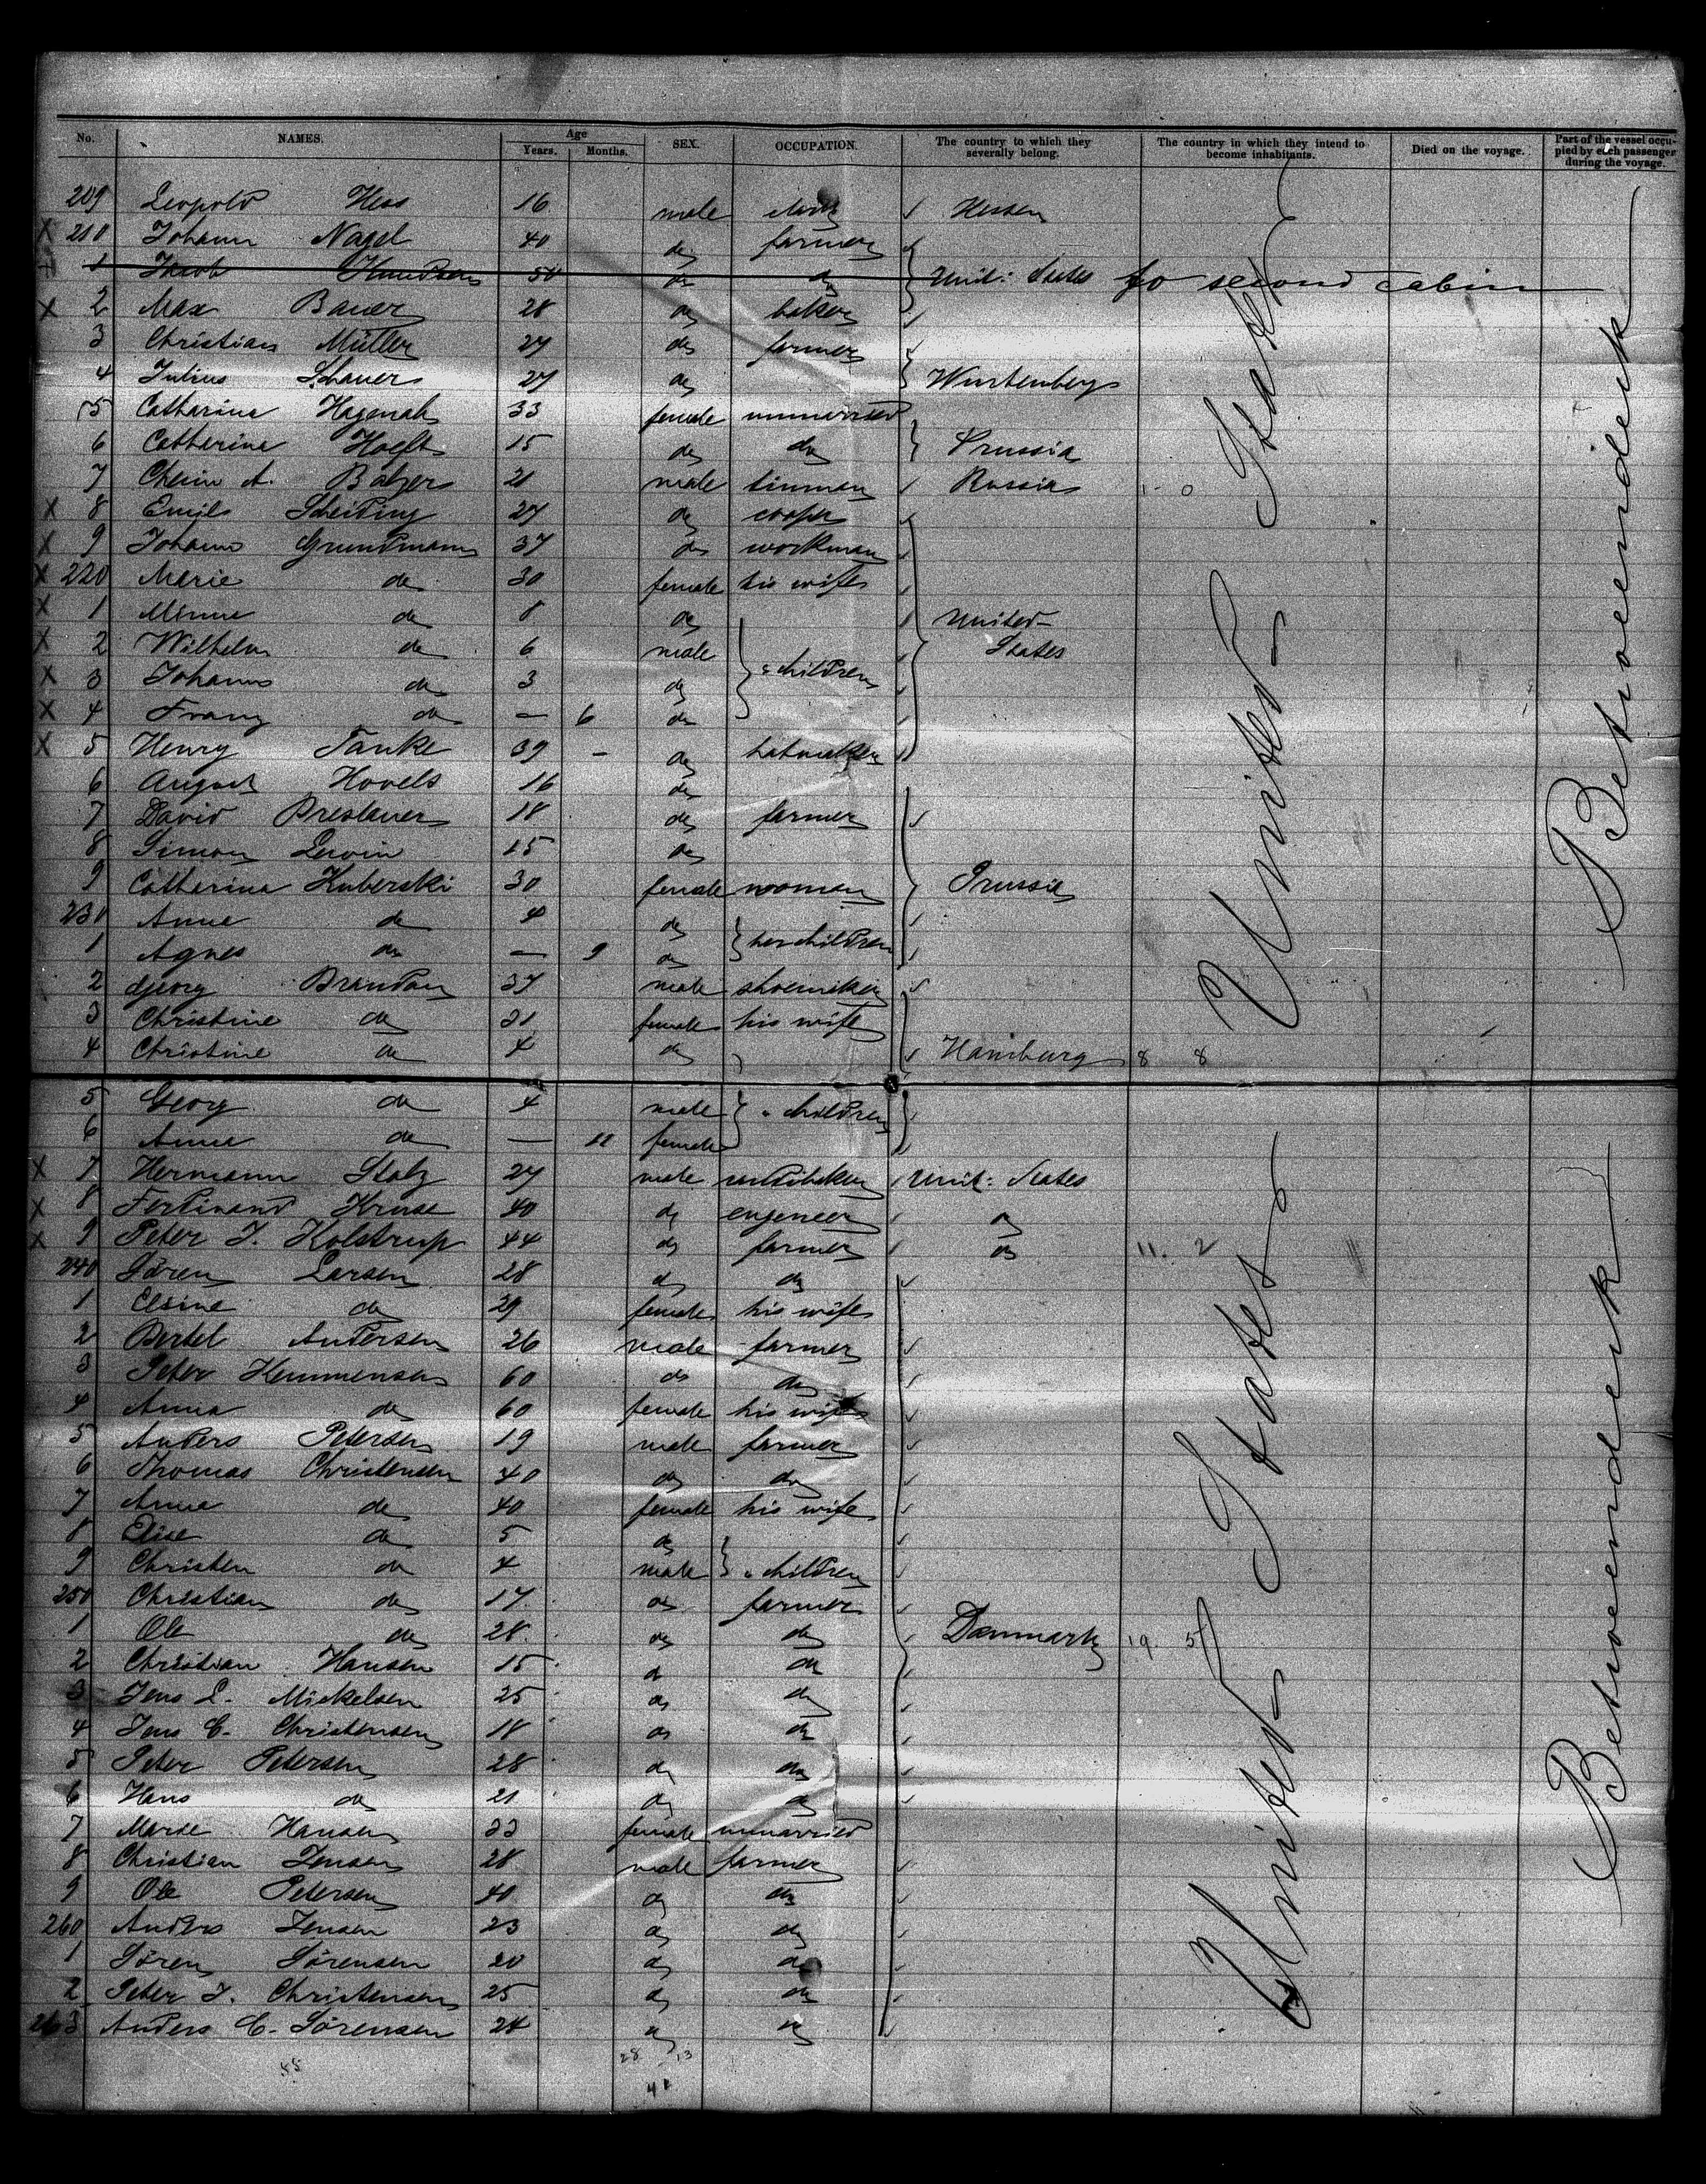 No. NAMES. Age Years. Months. SEX. OCCUPATION. The country to which they severally belong. The country in which they intend to become inhabitants. Died on the voyage. Part of the vessel occupied by each passenger during the voyage.
209 Leopold Hess 16 male Hessen
X 210 Johann Nagel 40 do farmer
1 Jacob Knudsen 54 do do Unit: States to second cabin
X 2 Max Bauer 28 do baker
3 Christian Müller 27 do farmer
4 Julius Schauer 27 do Wurtenberg
5 Catharina Hagenah 33 female unmarried
6 Catherine Hoeft 15 do do Prussia
7 Chaim A. Balzer 21 male tinman Russia
X 8 Emil Scheiding 27 do cooper
X 9 Johann Grundmann 37 do workman
X 220 Marie do 30 female his wife
X 1 Minna do 8 do United
X 2 Wilhelm do 6 male States
X 3 Johann do 3 do " children
X 4 Franz do — 6 do
X 5 Henry Tanke 39 - do hatmaker
6 August Hovels 16 do
7 David Breslauer 18 do farmer
8 Simon Lewin 15 do
9 Catharina Kuberski 30 female woman Prussia
230 Anna do 4 do
1 Agnes do — 9 do her children
2 Georg Brandau 37 male shoemaker
3 Christine do 31 female his wife
4 Christine do 4 do Hamburg 8 8
5 Georg do 4 male " children
6 Anna do — 11 female
X 7 Hermann Stolz 27 male Unit: States
X 8 Ferdinand Kruse 40 do engeneer do
X 9 Peter J. Kolstrup 44 do farmer do 11. 2
240 Sören Larsen 28 do do
1 Elsine do 29 female his wife
2 Bertel Andersen 26 male farmer
3 Peter Kemmensen 60 do do
4 Anna do 60 female his wife
5 Anders Petersen 19 male farmer
6 Thomas Christensen 40 do do
7 Anna do 40 female his wife
8 Elise do 5 do
9 Christen do 4 male " children
250 Christian do 17 do farmer
1 Ole do 28 do do Danmark 19. 5
2 Christian Hansen 15 do do
3 Jens L. Mickelsen 25 do do
4 Jens C. Christensen 18 do do
5 Peter Petersen 28 do do
6 Hans do 21 do do
7 Marie Hansen 22 female unmarried
8 Christian Jensen 28 male farmer
9 Ole Petersen 40 do do
260 Anders Jensen 23 do do
1 Sören Sörensen 20 do do
2 Peter J. Christensen 25 do do
263 Anders C. Sörensen 24 do do
28 13
41
United States
United States
Betweendeck
Betweendeck